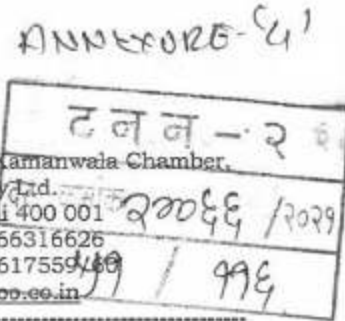 ANNEXURE-'4'
ट न न - २
Kamanwala Chamber,
y Ltd.
i 400 001 २००६६ /२०२१
66316626
617559/60
oo.co.in ५१ / ११६